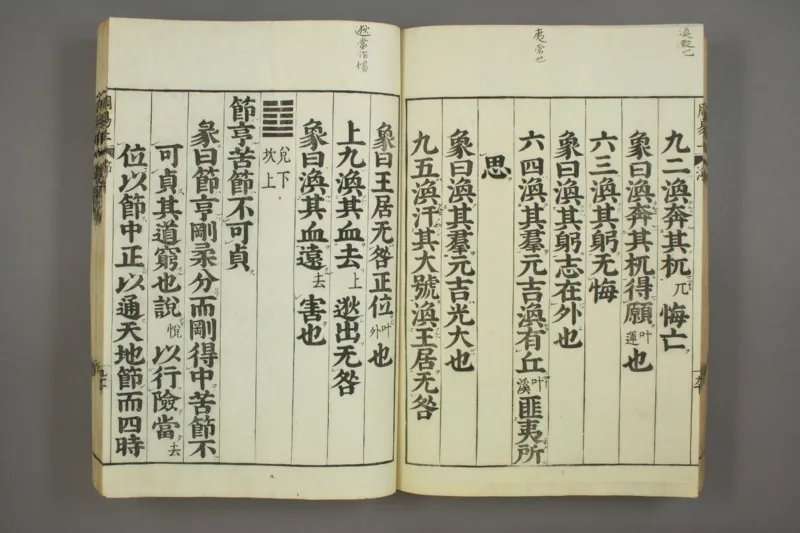 渙散也
九二渙奔其杌兀悔亡
象曰渙奔其杌得願叶運也
六三渙其躬无悔
象曰渙其躬志在外也
六四渙其羣元吉渙有丘叶溪匪夷所
思
象曰渙其羣元吉光大也
九五渙汗其大號渙王居无咎
夷常也
象曰王居无咎正位叶外也
上九渙其血去上逖出无咎
象曰渙其血遠去害也
䷻兌下坎上
節亨苦節不可貞
彖曰節亨剛柔分而剛得中苦節不
可貞其道窮也說悅以行險當去
位以節中正以通天地節而四時